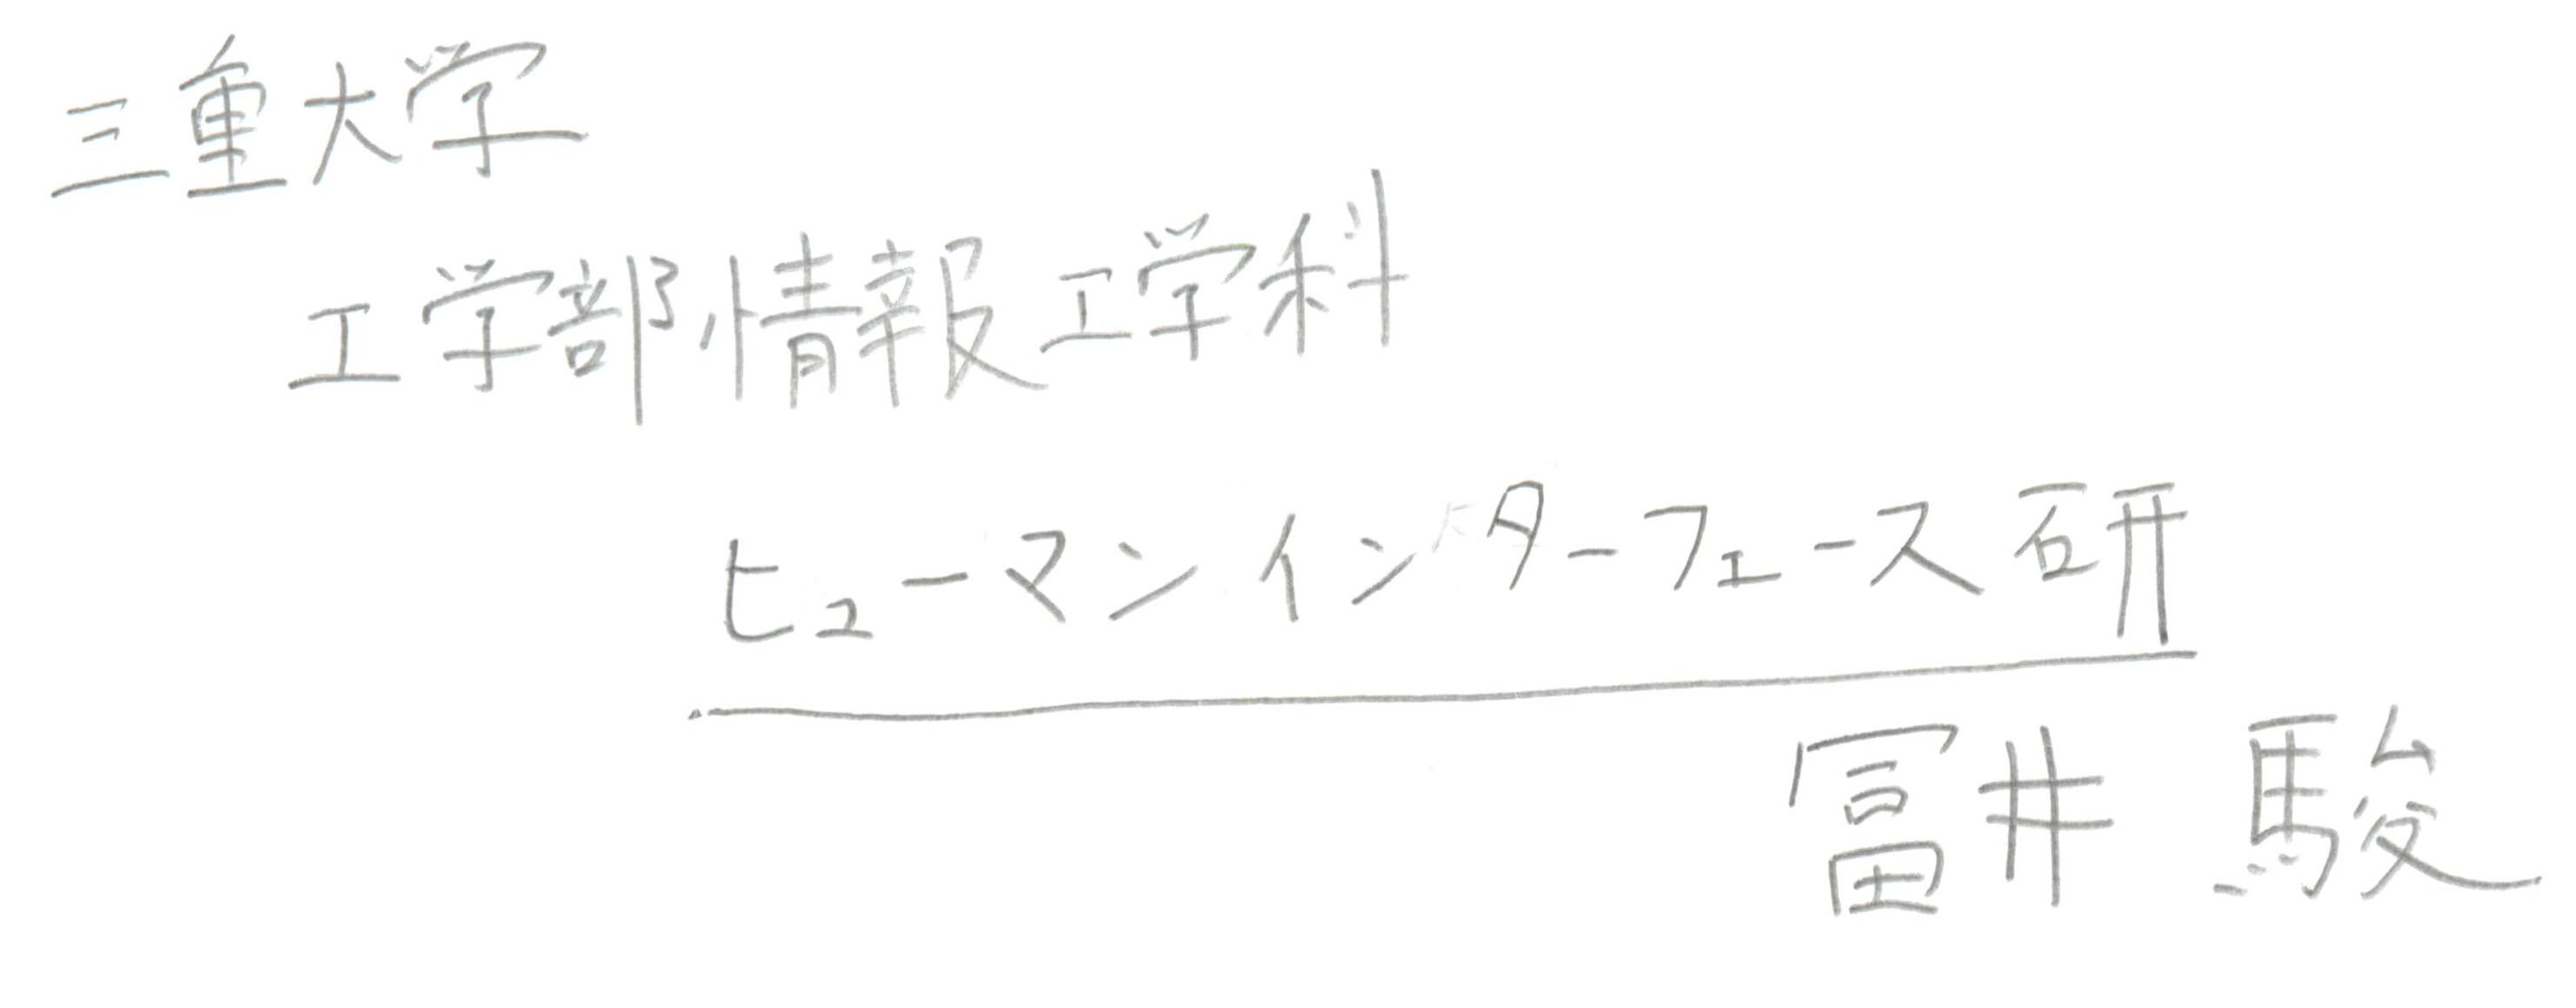 三重大学
工学部情報工学科
ヒューマンインターフェース研
冨井 駿